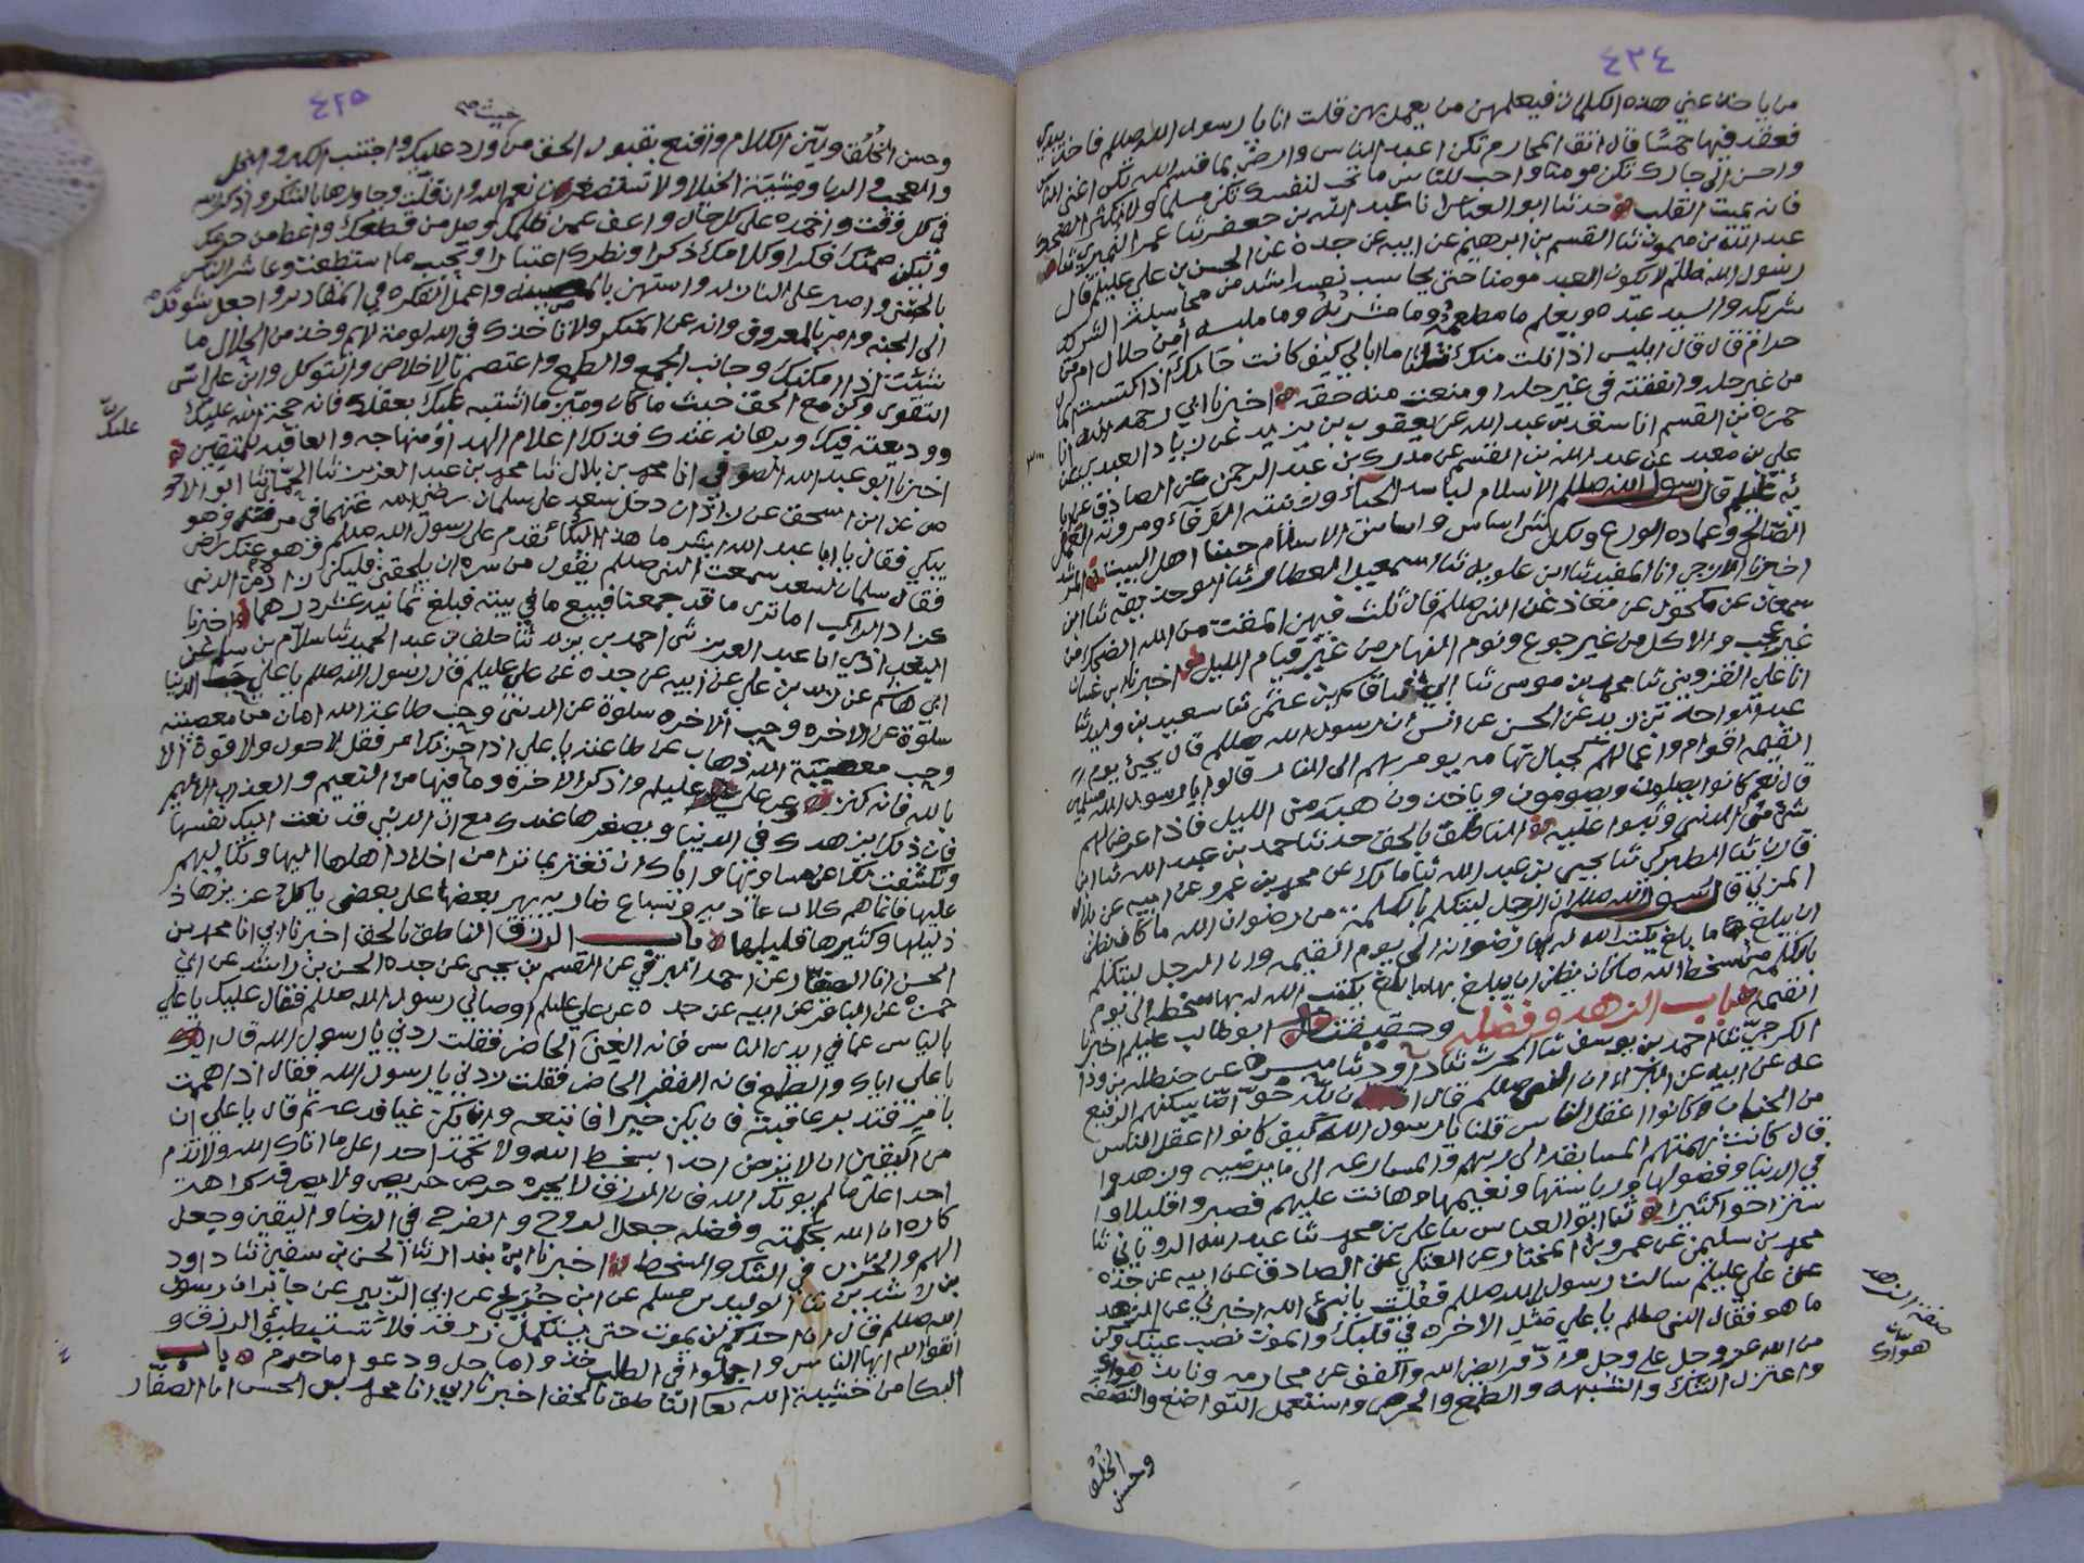 ٤٣٤
من ياخذ عني هذه الكلمات فيعلمهن من يعمل بهن قلت انا يا رسول الله صللم فاخذ بيدي
فعقد فيها خمسا قال اتق المحارم تكن اعبد الناس وارض بما قسم الله تكن اغنى الناس
واحسن الى جارك تكن مومنا واحب للناس ما تحب لنفسك تكن مسلما ولا تكثر الضحك
فانه يميت القلب حدثنا ابو العباس انا عبد الله بن جعفر ثنا عمر النميري ثنا
عبد الله بن ميمون ثنا القسم بن ابرهيم عن ابيه عن جده عن الحسن بن علي عليلم قال
رسول الله صللم لا يكون العبد مومنا حتى يحاسب نفسه اشد من محاسبة الشريك
شريكه والسيد عبده ويعلم ما مطعمه وما مشربه وما ملبسه أمن حلال ام من
حرام قال قال ابليس اذا نلت منك ثلثا ما ابالي كيف كانت حالك اذا اكتسبت مالا
من غير حله وانفقته في غير حله ومنعت منه حقه اخبرنا ابي رحمه الله انا
حمزه بن القسم انا سعد بن عبد الله عن يعقوب بن يزيد عن زياد العبدي عن
علي بن معبد عن عبد الله بن القسم عن مدرك بن عبد الرحمن عن الصادق عن ابا
ئه عليلم قال رسول الله صللم الاسلام لباسه الحياء وزينته الوفاء ومروته العمل
الصالح وعماده الورع ولكل شي اساس واساس الاسلام حبنا اهل البيت
اخبرنا انا المفيد ثنا ابن علويه ثنا اسمعيل العطار ثنا ابو حذيفه ثنا ابن
سمعان عن مكحول عن معاذ عن النبي صللم قال ثلث فيهن المقت من الله الضحك من
غير عجب والاكل من غير جوع ونوم النهار من غير قيام الليل اخبرنا ابن غسان
انا علي القزويني ثنا محمد بن موسى ثنا عثمن ثنا سعيد بن وليد ثنا
عبد الواحد بن زيد عن الحسن عن انس ان رسول الله صللم قال يجي يوم
القيمه اقوام واعمالهم كجبال تهامه يومر بهم الى النار قالوا يا رسول الله مصلين
قال نعم كانوا يصلون ويصومون وياخذون هبه من الليل فاذا عرض لهم
شي من الدنيا وثبوا عليه الناطق بالحق حدثنا احمد بن عبد الله ثنا ابن
قارن ثنا الطبركي ثنا يحيى بن عبد الله ثنا مالك عن محمد بن عمرو عن ابيه عن بلال
المزني قال رسول الله صللم ان الرجل ليتكلم بالكلمة من رضوان الله ما كان يظن
ان يبلغ بها ما بلغ يكتب الله له بها رضوانه الى يوم القيمه وان الرجل ليتكلم
بالكلمه من سخط الله ما كان يظن ان يبلغ بها ما بلغ يكتب الله له بها سخطه الى يوم
القيمه باب الزهد وفضله وحقيقته ابو طالب عليلم اخبرنا
الكرجي ثنا احمد بن يوسف ثنا الحرث ثنا داود ثنا ميسره عن حنظله بن ودا
عه عن ابيه عن البراء ان النبي صللم قال ان لله خواص يسكنهم الرفيع
من الجنان كانوا اعقل الناس قلنا يا رسول الله كيف كانوا اعقل الناس
قال كانت نهمتهم المسابقه الى ربهم والمسارعه الى ما يرضيه وزهدوا
في الدنيا وفضولها ورياستها ونعيمها وهانت عليهم فصبروا قليلا وا
ستراحوا كثيرا ثنا ابو العباس ثنا علي بن محمد ثنا عبد الله الروياني ثنا
محمد بن سليمن عن عمرو بن المختار عن العتكي عن الصادق عن ابيه عن جده
عن علي عليلم سالت رسول الله صللم فقلت يا نبي الله اخبرني عن الزهد
ما هو فقال النبي صللم يا علي مثل الاخره في قلبك والموت نصب عينك وكن
من الله عز وجل على وجل واد فرايض الله واكفف عن محارمه ونابذ هواك
واعتزل الشك والشبهه والطمع والحرص واستعمل التواضع والنصفه
وحسن الخلق
صفة الزهد
هواك
٤٢٥
خبيث
وحسن الخلق ولين الكلام واقنع بقبول الحق من ورد عليك واجتنب الكبر والبخل
والعجب والريا ومشية الخيلا ولا تستصغرن نعم الله وان قلت وجازها بالشكر واذكر الله
في كل وقت واحمده على كل حال واعف عمن ظلمك وصل من قطعك واعط من حرمك
وليكن صمتك فكرا وكلامك ذكرا ونظرك اعتبارا وتحبب ما استطعت وعاشر الناس
بالحسنى واصبر على النازله واستهن بالمصيبه واعمل الفكره في المقادير واجعل شوقك
الى الجنه وامر بالمعروف وانه عن المنكر ولا تاخذك في الله لومة لايم وخذ من الحلال ما
شئت اذا امكنك وجانب الجمع والطمع واعتصم بالاخلاص والتوكل وابن على اس
التقوى وكن مع الحق حيث ما كان وميز ما اشتبه عليك بعقلك فانه حجة الله عليك
ووديعته فيك وبرهانه عندك فذلك اعلام الهدى ومنهاجه والعاقبه للمتقين
عليك
اخبرنا ابو عبد الله الصوافي انا محمد بن بلال ثنا محمد بن عبد العزيز ثنا الحماني ثنا ابو الاحو
ص عن ابي اسحق عن زاذان دخل سعد على سلمان رضي الله عنهما في مرضه وهو
يبكي فقال يا ابا عبد الله ابشر ما هذا البكا تقدم على رسول الله صللم وهو عنك راض
فقال سلمان لسعد سمعت النبي صللم يقول من سره ان يلحقني فليكن زاده من الدنيا
كزاد الراكب اما ترى ما قد جمعنا فبيع ما في بيته فبلغ ثمانية عشر درهما اخبرنا
انا عبد العزيز ثنى احمد بن يزيد ثنا خلف بن عبد الحميد ثنا سلام بن سلم عن
ابي هاشم عن زيد بن علي عن ابيه عن جده عن علي عليلم قال رسول الله صللم يا علي حب الدنيا
سلوة عن الاخره وحب الاخره سلوة عن الدنيا وحب طاعة الله امان من معصيته
وحب معصية الله ذهاب عن طاعته يا علي اذا حزنك امر فقل لا حول ولا قوة الا
بالله فانه كنز وعن علي عليلم واذكر الاخرة وما فيها من النعيم والعذاب الاليم
فان ذلك يزهدك في الدنيا ويصغرها عندك مع ان الدنيا قد نعت اليك نفسها
وتكشفت لك عن مساويها واياك ان تغتر بما ترا من اخلاد اهلها اليها وتكالبهم
عليها فانما هم كلاب عاويه وسباع ضاريه يهر بعضها على بعض ياكل عزيزها ذ
ذليلها وكثيرها قليلها باب الرزق الناطق بالحق اخبرنا ابي انا محمد بن
الحسن انا الصفار عن احمد البرقي عن القسم بن يحيى عن جده الحسن بن راشد عن ابي
حمزه عن الباقر عن ابيه عن جده عن علي عليلم اوصاني رسول الله صللم فقال عليك يا علي
بالياس عما في ايدي الناس فانه الغنى الحاضر فقلت زدني يا رسول الله قال اياك
يا علي اياك والطمع فانه الفقر الحاضر فقلت زدني يا رسول الله فقال اذا هممت
بامر فتدبر عاقبته فان يكن خيرا فاتبعه وان يكن غيا فدعه ثم قال يا علي ان
من اليقين ان لا ترضي احدا بسخط الله ولا تحمد احدا على ما اتاك الله ولا تذم
احدا على ما لم يوتك الله فان الرزق لا يجره حرص حريص ولا يصرفه كراهة
كاره ان الله بحكمته وفضله جعل الروح والفرح في الرضا واليقين وجعل
الهم والحزن في الشك والسخط اخبرنا ابن بندار ثنا الحسن بن سفين ثنا داود
بن رشيد ثنا الوليد بن مسلم عن ابن جريج عن ابي الزبير عن جابر ان رسول
الله صللم قال ان احدكم لن يموت حتى يستكمل رزقه فلا تستبطيؤ الرزق و
اتقوا الله ايها الناس واجملوا في الطلب خذوا ما حل ودعوا ما حرم باب
البكا من خشية الله تعا الناطق بالحق اخبرنا ابي انا محمد بن الحسن انا الصفار